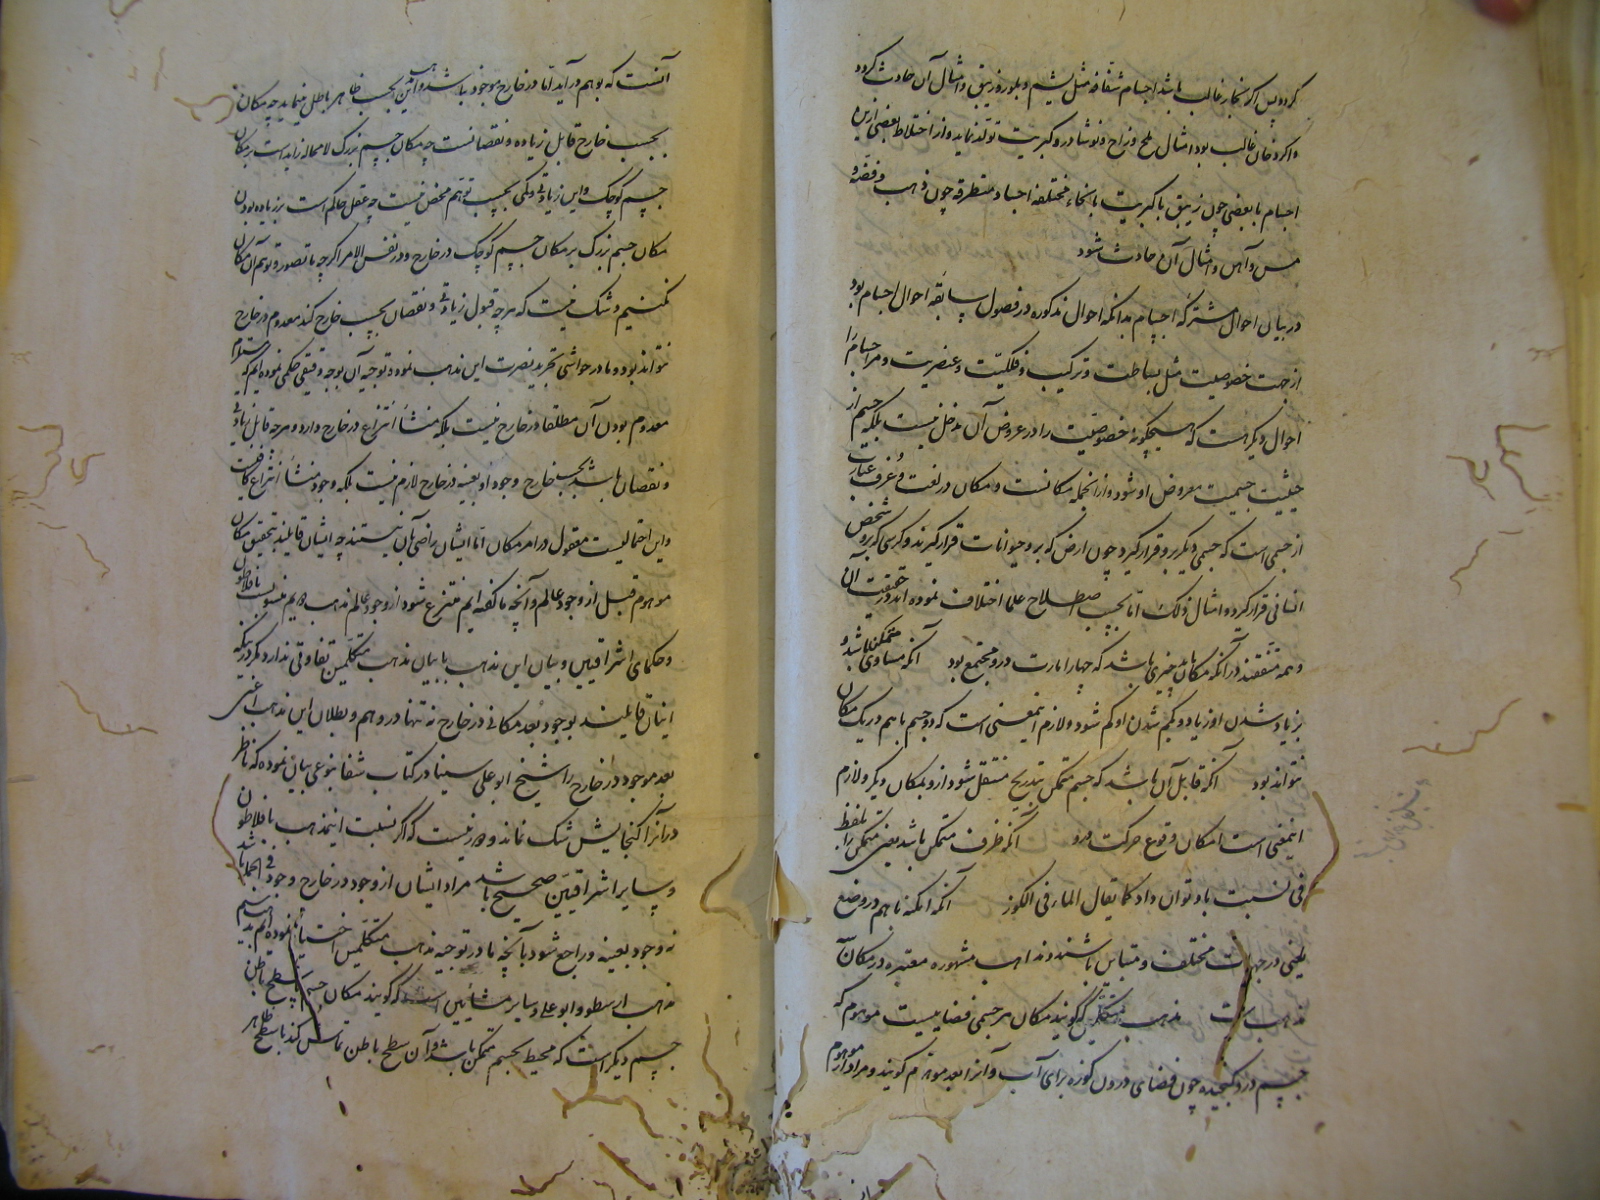 کردد پس اگر بخار غالب باشد اجسام شفافه مثل یشم و بلور و زیبق و امثال آن حادث گردد
و اگر دخان غالب بود امثال ملح و زاج و نوشادر و کبریت تولد نماید و از اختلاط بعضی ازین
اجسام با بعضی چون زیبق با کبریت بانحاء مختلفه اجساد متطرقه چون ذهب و فضه و
مس و آهن و امثال آن حادث شود
در بیان احوال مشترکه اجسام بدانکه احوال مذکوره در فصول سابقه احوال اجسام بود
از جهت خصوصیت مثل بساطت و ترکیب و فلکیت و عنصریت و مر اجسام را
احوال دیگر هست که هیچگونه خصوصیت را در عروض آن مدخل نیست بلکه جسم از
حیثیت جسمیت معروض او شود و از انجمله مکانست و مکان در لغت و عرف عبارت
از جسمی است که جسمی دیگر برو قرار گیرد چون ارض که برو حیوانات قرار گیرند و کرسی که برو شخص
انسانی قرار گیرد و امثال ذلک اما بحسب اصطلاح علما اختلاف نموده اند در حقیقت آن
و همه متفقند در آنکه مکان باید چیزی باشد که چهار امارت درو مجتمع بود آنکه مساوی متمکن باشد و
بزیاد شدن او زیاد و بکم شدن او کم شود و لازم اینمعنی است که دو جسم با هم در یک مکان
نتواند بود آنکه قابل آن باشد که جسم متمکن بتدریج منتقل شود ازو بمکان دیگر و لازم
اینمعنی است امکان وقوع حرکت درو آنکه ظرف متمکن باشد یعنی متمکن را بلفظ
فی نسبت باو توان داد کما یقال الماء فی الکوز آنکه امکنه با هم در وضع
یعنی در جهات مختلف و متباین باشند و مذاهب مشهوره معتبره در مکان
مذهب است مذهب متکلمین که گویند مکان هر جسمی فضاییست موهوم که
جسم درو گنجیده چون فضای درون کوزه برای آب و آنرا بعد موهوم گویند و مراد از موهوم
آنست که بوهم درآید اما در خارج موجود نباشد و این مذهب بحسب ظاهر باطل مینماید چه مکان
بحسب خارج قابل زیاده و نقصانست چه مکان جسم بزرگ لا محاله زاید است بر مکان
جسم کوچک و این زیادتی و کمی بحسب توهم محض نیست چه عقل حاکم است بر زیاده بودن
مکان جسم بزرگ بر مکان جسم کوچک در خارج و در نفس الامر اگرچه ما تصور و توهم آن مکان
نکنیم و شک نیست که هر چه قبول زیادتی و نقصان بحسب خارج کند معدوم در خارج
نتواند بود و ما در حواشی تجرید نصرت این مذهب نموده توجیه آن بوجه دقیقی حکمی نموده ایم که مستلزم
معدوم بودن آن مطلقا در خارج نیست بلکه منشأ انتزاع در خارج دارد و هر چه قابل زیادتی
و نقصان باشد بحسب خارج وجود او بعینه در خارج لازم نیست بلکه وجود منشأ انتزاع کافیست
و این احتمالیست معقول در امر مکان اما ایشان راضی بآن نیستند چه ایشان قایلند بتحقیق مکان
موهوم قبل از وجود عالم و آنچه ما گفته ایم منتزع شود از وجود عالم مذهب دویم منسوبست بافلاطون
و حکمای اشراقیین و بیان این مذهب با بیان مذهب متکلمین تفاوتی ندارد مگر در اینکه
اینان قایلند بوجود بعد مکانی در خارج نه تنها در وهم و بطلان این مذهب اعنی
بعد موجود در خارج را شیخ ابو علی سینا در کتاب شفا بنوعی بیان نموده که ناظر
در آنرا گنجایش شک نماند و دور نیست که اگر نسبت اینمذهب بافلاطون
و سایر اشراقیین صحیح باشد مراد ایشان از وجود در خارج وجود فی الجمله باشد
نه وجود بعینه و راجع شود بآنچه ما در توجیه مذهب متکلمین اختیار نموده ایم مذهب سیم
مذهب ارسطو و ابو علی و سایر مشائیین است که گویند مکان جسم سطح باطن
جسم دیگر است که محیط بجسم متمکن باشد و آن سطح باطن تماس کند با سطح ظاهر